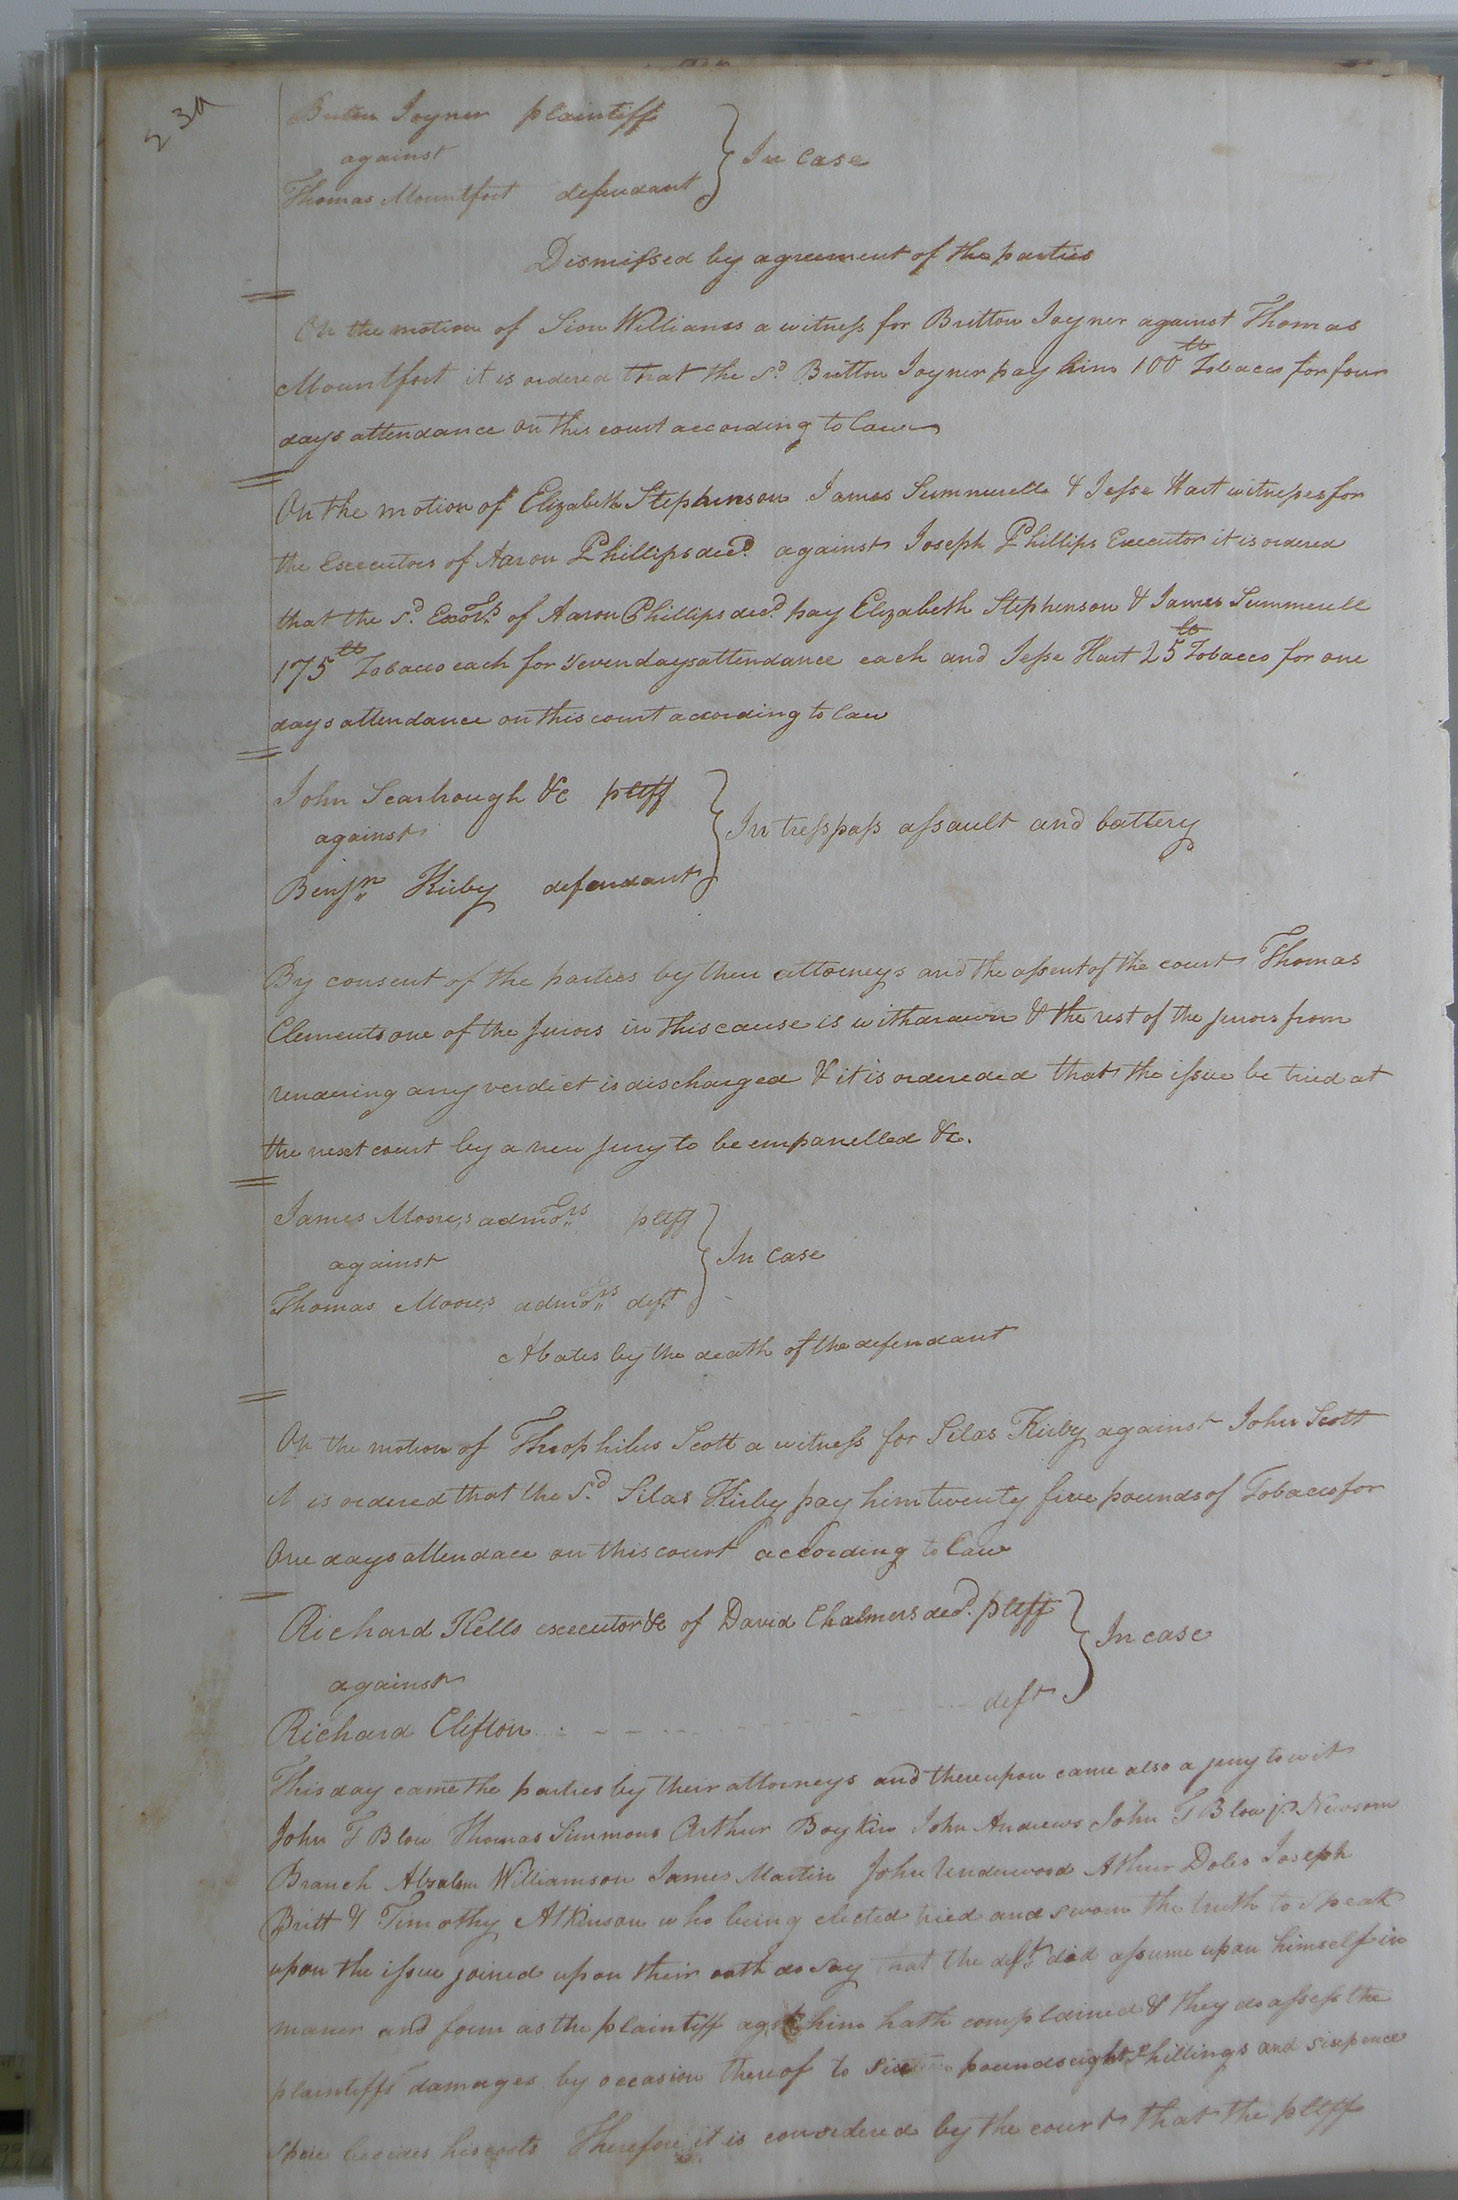 230
Britten Joyner plaintiff
against
Thomas Mountfort defendant
In case
Dismissed by agreement of the parties
On the motion of Sion Williams a witness for Britton Joyner against Thomas
Mountfort it is ordered that the sd. Britton Joyner pay him 100 lb Tobacco for four
days attendance on this court according to law
On the motion of Elizabeth Stephenson James Summerell & Jesse Hart witnesses for
the Executors of Aaron Phillips decd. against Joseph Phillips Executor it is ordered
that the sd. Exors. of Aaron Phillips decd. pay Elizabeth Stephenson & James Summerell
175 lb Tobacco each for seven days attendance each and Jesse Hart 25 lb Tobacco for one
days attendance on this court according to law
John Scarbrough &c pltff
against
Benjn. Kirby defendant
In tresspass assault and battery
By consent of the parties by their attorneys and the assent of the court Thomas
Clements one of the Jurors in this cause is withdrawn & the rest of the jurors from
rendering any verdict is discharged & it is ordereded that the issue be tried at
the next court by a new jury to be empanelled &c.
James Moore,s admors. pltff
against
Thomas Moore,s admors. deft
In case
Abates by the death of the defendant
On the motion of Theophilus Scott a witness for Silas Kirby against John Scott
it is ordered that the sd. Silas Kirby pay him twenty five pounds of Tobacco for
One days attendace on this court according to law
Richard Kello executor &c of David Chalmers decd. pltff
against
Richard Clifton deft
In case
This day came the parties by their attorneys and thereupon came also a jury to wit
John T Blow Thomas Simmons Arthur Boykin John Andrews John T Blow jr Newsom
Branch Absalom Williamson James Martin John Underwood Athur Doles Joseph
Britt & Timothy Atkinson who being elected tried and sworn the truth to speak
upon the issue joined upon their oath do say that the deft. did assume upon himself in
maner and form as the plaintiff agst him hath complained & they do assess the
plaintiffs damages by occasion thereof to six pounds eight shillings and sixpence
besides his costs Therefore it is considered by the court that the pltff